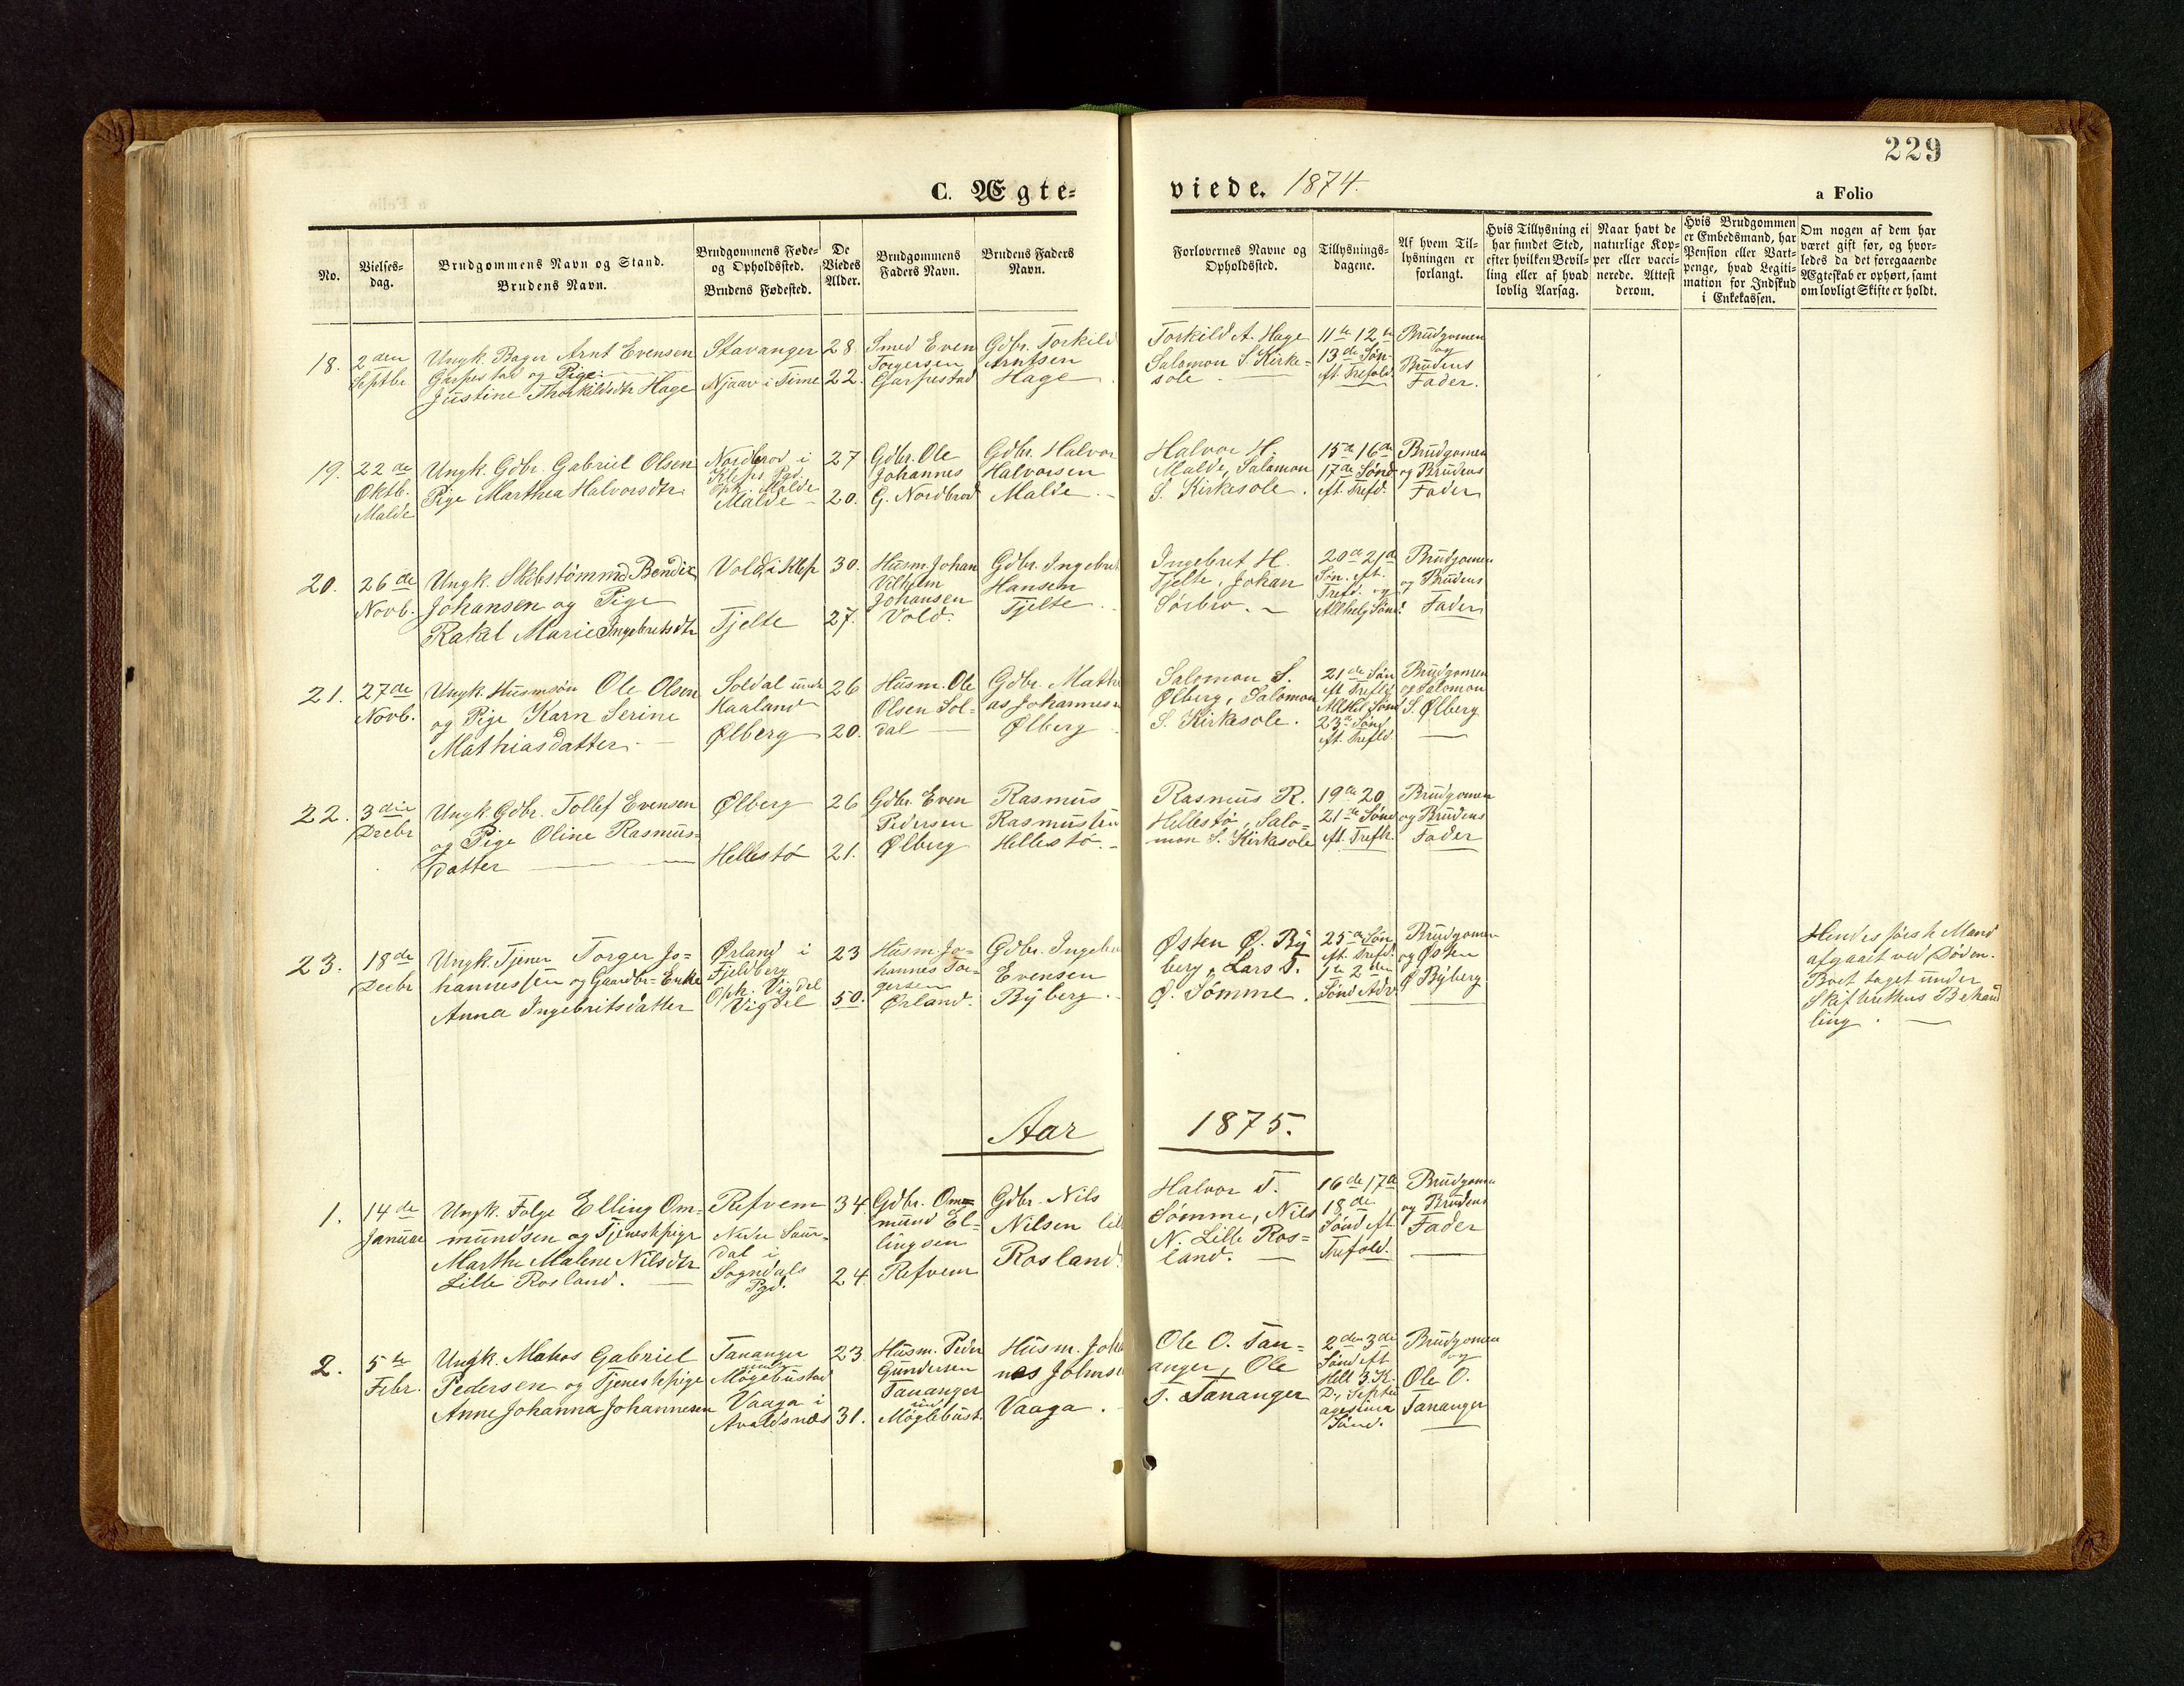 229
C. Ægte-
viede. 1874.
a Folio
No.
Vielses-
dag.
Brudgommens Navn og Stand.
Brudens Navn.
Brudgommens Føde-
og Opholdssted.
Brudens Fødested.
De
Viedes
Alder.
Brudgommens
Faders Navn.
Brudens Faders
Navn.
Forlovernes Navne og
Opholdssted.
Tillysnings-
dagene.
Af hvem Til-
lysningen er
forlangt.
Hvis Tillysning ei
har fundet Sted,
efter hvilken Bevil-
ling eller af hvad
lovlig Aarsag.
Naar havt de
naturlige Kop-
per eller vacci-
nerede. Attest
derom.
Hvis Brudgommen
er Embedsmand, har
Pension eller Vart-
penge, hvad Legiti-
mation for Indskud
i Enkekassen.
Om nogen af dem har
været gift før, og hvor-
ledes da det foregaaende
Ægteskab er ophørt, samt
om lovligt Skifte er holdt.
18.
2den
Septbr
Ungk. Bager Arnt Evensen
Garpestad og Pige
Justine Thorkildsdtr Hage
Stavanger
Njaav i Time
28
22.
Smed Even
Torgersen
Garpestad
Gdbr. Torkild
Arntsen
Hage
Torkild A. Hage
Salomon S. Kirke-
sole
11te 12te
13de Søn-
eft. Trefold.
Brudgomen
og
Brudens
Fader.
19.
22de
Oktb.
Malde
Ungk. Gdbr. Gabriel Olsen
Pige Marthea Halvorsdtr.
Nordbrod i
Klepps Pgd.
Oph. Malde
Malde
27
20.
Gdbr. Ole
Johannes
G. Nordbrod
Gdbr. Halvor
Halvorsen
Malde.
Halvor H.
Malde, Salomon
S. Kirkesole.
15de 16de
17de Sønd
eft. Trefd.
Brudgomen
og Brudens
Fader
20.
26de
Novb.
Ungk. Skibstømmd Bendix
Johansen og Pige
Rakel Marie Ingebretsdtr
Vold i Klep
Tjelte
30.
27.
Husm. Johan
Vilhelm
Johansen
Vold.
Gdbr. Ingebret
Hansen
Tjelte.
Ingebret H.
Tjelte, Johan
Sørbro.
20de 21de
Søn. eft.
Trefd. og
Allhelg Sønd.
Brudgomen
og Brudens
Fader
21.
27de
Novb.
Ungk. Husmsøn Ole Olsen
og Pige Karn Serine
Mathiasdatter.
Soldal und
Haaland
Ølberg
26
20.
Husm. Ole
Olsen Sol-
dal
Gdbr. Mathi
as Johannesn
Ølberg
Salomon S.
Ølberg, Salomon
S. Kirkesole.
21de Søn
eft Trefld
AllHel Sønd
23de Sønd
eft. Trefld.
Brudgomen
og Salomon
S. Ølberg
22.
3die
Decbr
Ungk. Gdbr. Tollef Evensen
og Pige Oline Rasmus-
datter
Ølberg
Hellestø
26
21.
Gdbr. Even
Pedersen
Ølberg
Rasmus
Rasmussen
Hellestø.
Rasmus R.
Hellestø, Salo-
mon S. Kirkesole
19de 20
21de Sønd
eft. Trefh.
Brudgomen
og Brudens
Fader
23.
18de
Decbr
Ungk. Tjener Torger Jo-
hannessen og Gaardbr-Enke
Anna Ingebritsdatter
Ørland i
Fjeldberg
Oph. Vigdel
Vigdel
23
50.
Husm. Jo-
hannes Tor-
gersen
Ørland.
Gdbr. Ingebr
Evensen
Byberg.
Østen Ø. By
berg, Lars T.
Ø. Sømme.
25de Søn
eft. Trefd.
1te 2den
Sønd Adv.
Brudgomen
og Østen
Ø Byberg.
Hendes første Mand
afgaaet ved Døden.
Boet taget under
Skifterettens Behand
ling.
Aar 1875.
1.
14de
Januar
Ungk. Følge Elling Om-
mundsen og Tjenestepige
Marthe Malene Nilsdtr
Lille Rosland.
Refvem
Nedre Saur-
dal i
Sogndals
Pgd.
34
24.
Gdbr. Om-
mund El-
lingsen
Refvem
Gdbr. Nils
Nilsen lill
Rosland.
Halvor T.
Sømme, Nils
N. Lille Ros-
land.
16de 17de
18de
Sønd eft
Trefold.
Brudgomen
og Brudens
Fader
2.
5te
Febr.
Ungk. Matros Gabriel
Pedersen og Tjenestepige
Anne Johanna Johannesen
Tananger
und
Møgebustad
Vaaga i
Avaldsnæs
23
31.
Husm. Peder
Gundersen
Tananger
und
Møglebust.
Husm. Joha
nes Johnse
Vaaga.
Ole O. Tan-
anger, Ole
T. Tananger
2den 3de
Sønd eft
Hell 3. K.
D., Septu
agesima
Sønd.
Brudgomen
og
Ole O.
Tananger